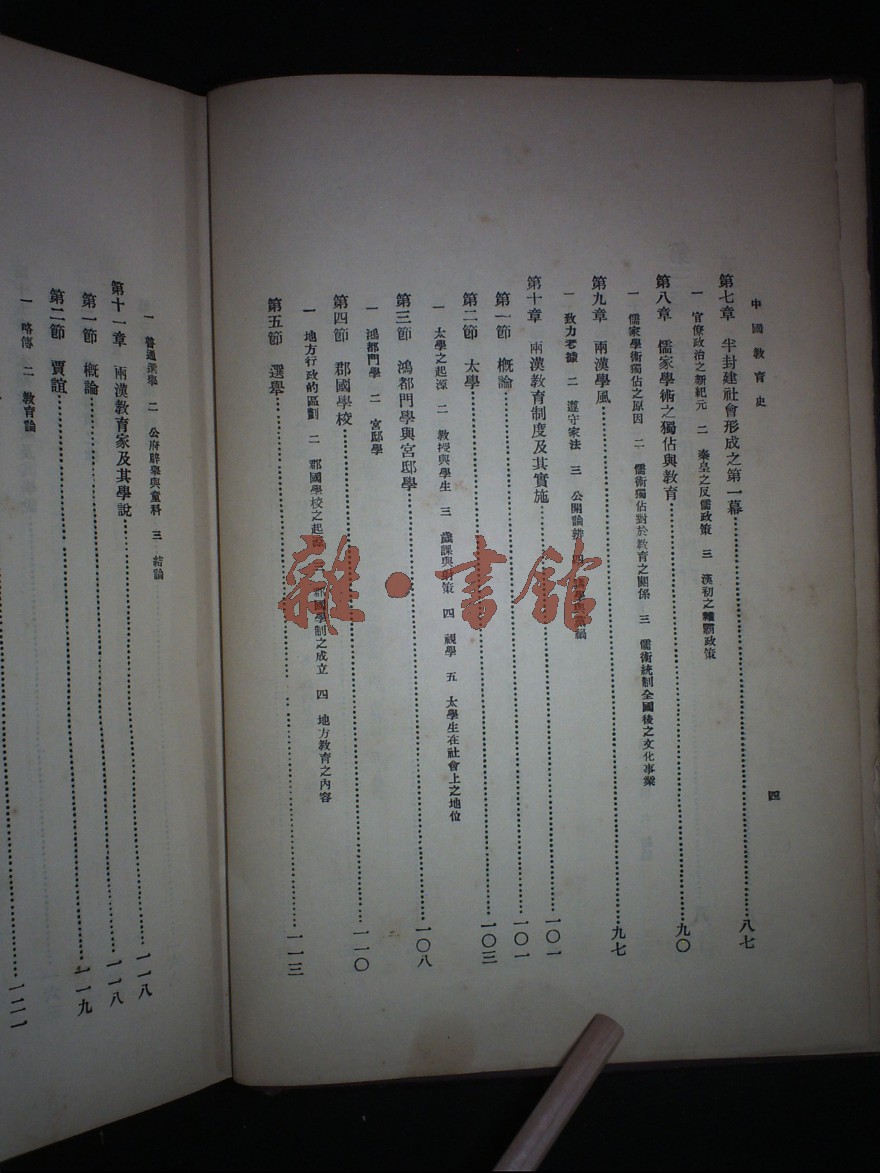 中國教育史
四
第七章 半封建社會形成之第一幕 八七
一 官僚政治之新紀元 二 秦皇之反儒政策 三 漢初之 政策
第八章 儒家學術之獨佔與教育 九〇
一 儒家學術獨佔之原因 二 儒術獨佔對於教育之關係 三 儒術統制全國後之文化事業
第九章 兩漢學風 九七
一 致力考據 二 遵守家法 三 公開論辨 四
第十章 兩漢教育制度及其實施 一〇一
第一節 概論 一〇一
第二節 太學 一〇三
一 太學之起源 二 教授與學生 三 歲課與射策 四 視學 五 太學生在社會上之地位
第三節 鴻都門學與宮邸學 一〇八
一 鴻都門學 二 宮邸學
第四節 郡國學校 一一〇
一 地方行政的區劃 二 郡國學校之起源 三 郡國學制之成立 四 地方教育之內容
第五節 選舉 一一三
一 普通選舉 二 公府辟舉與童科 三 結論
一一八
第十一章 兩漢教育家及其學說 一一八
第一節 概論 一一九
第二節 賈誼 一二一
一 略傳 二 教育論
雜·書館